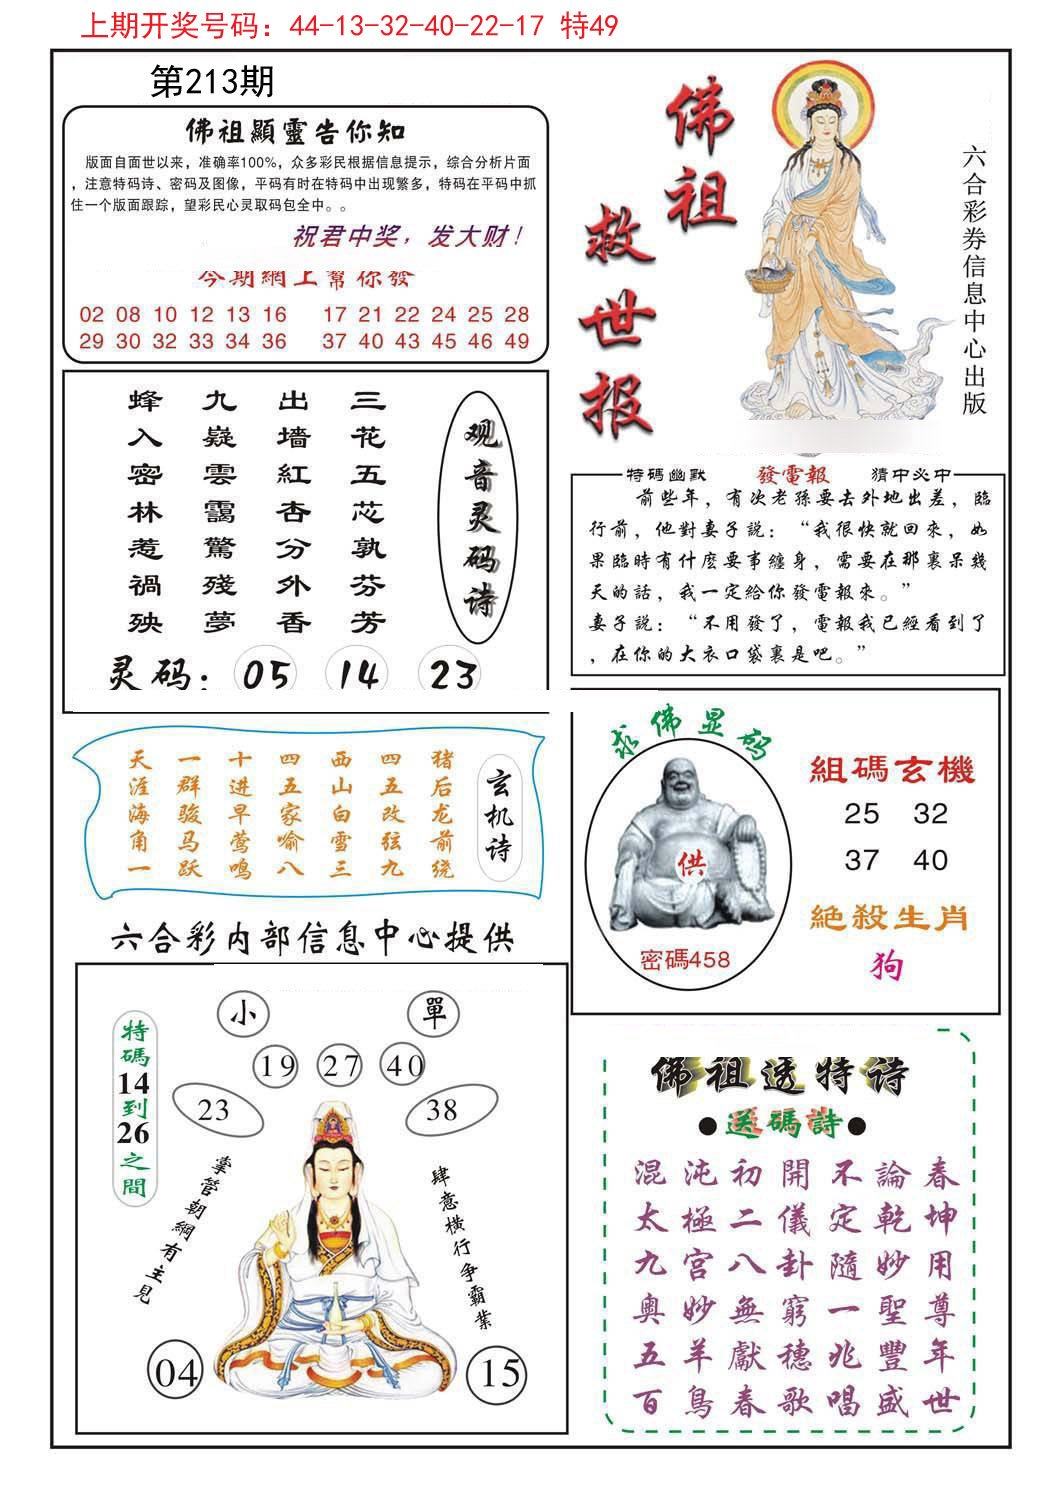 上期开奖号码：44-13-32-40-22-17 特49
第213期
佛祖顯靈告你知
版面自面世以来，准确率100%，众多彩民根据信息提示，综合分析片面
，注意特码诗、密码及图像，平码有时在特码中出现繁多，特码在平码中抓
住一个版面跟踪，望彩民心灵取码包全中。。
祝君中奖，发大财！
今期網上幫你發
02 08 10 12 13 16 17 21 22 24 25 28
29 30 32 33 34 36 37 40 43 45 46 49
佛祖
救世报
六合彩券信息中心出版
观音灵码诗
三花五芯孰芬芳
出墙紅杏分外香
九嶷雲靄驚殘夢
蜂入密林惹禍殃
灵码：05 14 23
特碼幽默 發電報 猜中必中
前些年，有次老孫要去外地出差，臨
行前，他對妻子説：“我很快就回來，如
果臨時有什麽要事缠身，需要在那裏呆幾
天的話，我一定給你發電報來。”
妻子説：“不用發了，電報我已經看到了
，在你的大衣口袋裏是吧。”
玄机诗
猪后龙前绕
四五改弦九
西山白雪三
四五家喻八
十进早莺鸣
一群骏马跃
天涯海角一
求佛显码
供
密碼458
組碼玄機
25 32
37 40
絕殺生肖
狗
六合彩内部信息中心提供
特碼14到26之間
小 單
19 27 40
23 38
掌管朝綱有主見
肆意橫行争霸業
04 15
佛祖透特诗
●送碼詩●
混沌初開不論春
太極二儀定乾坤
九宫八卦隨妙用
奥妙無窮一聖尊
五羊獻穗兆豐年
百鳥春歌唱盛世